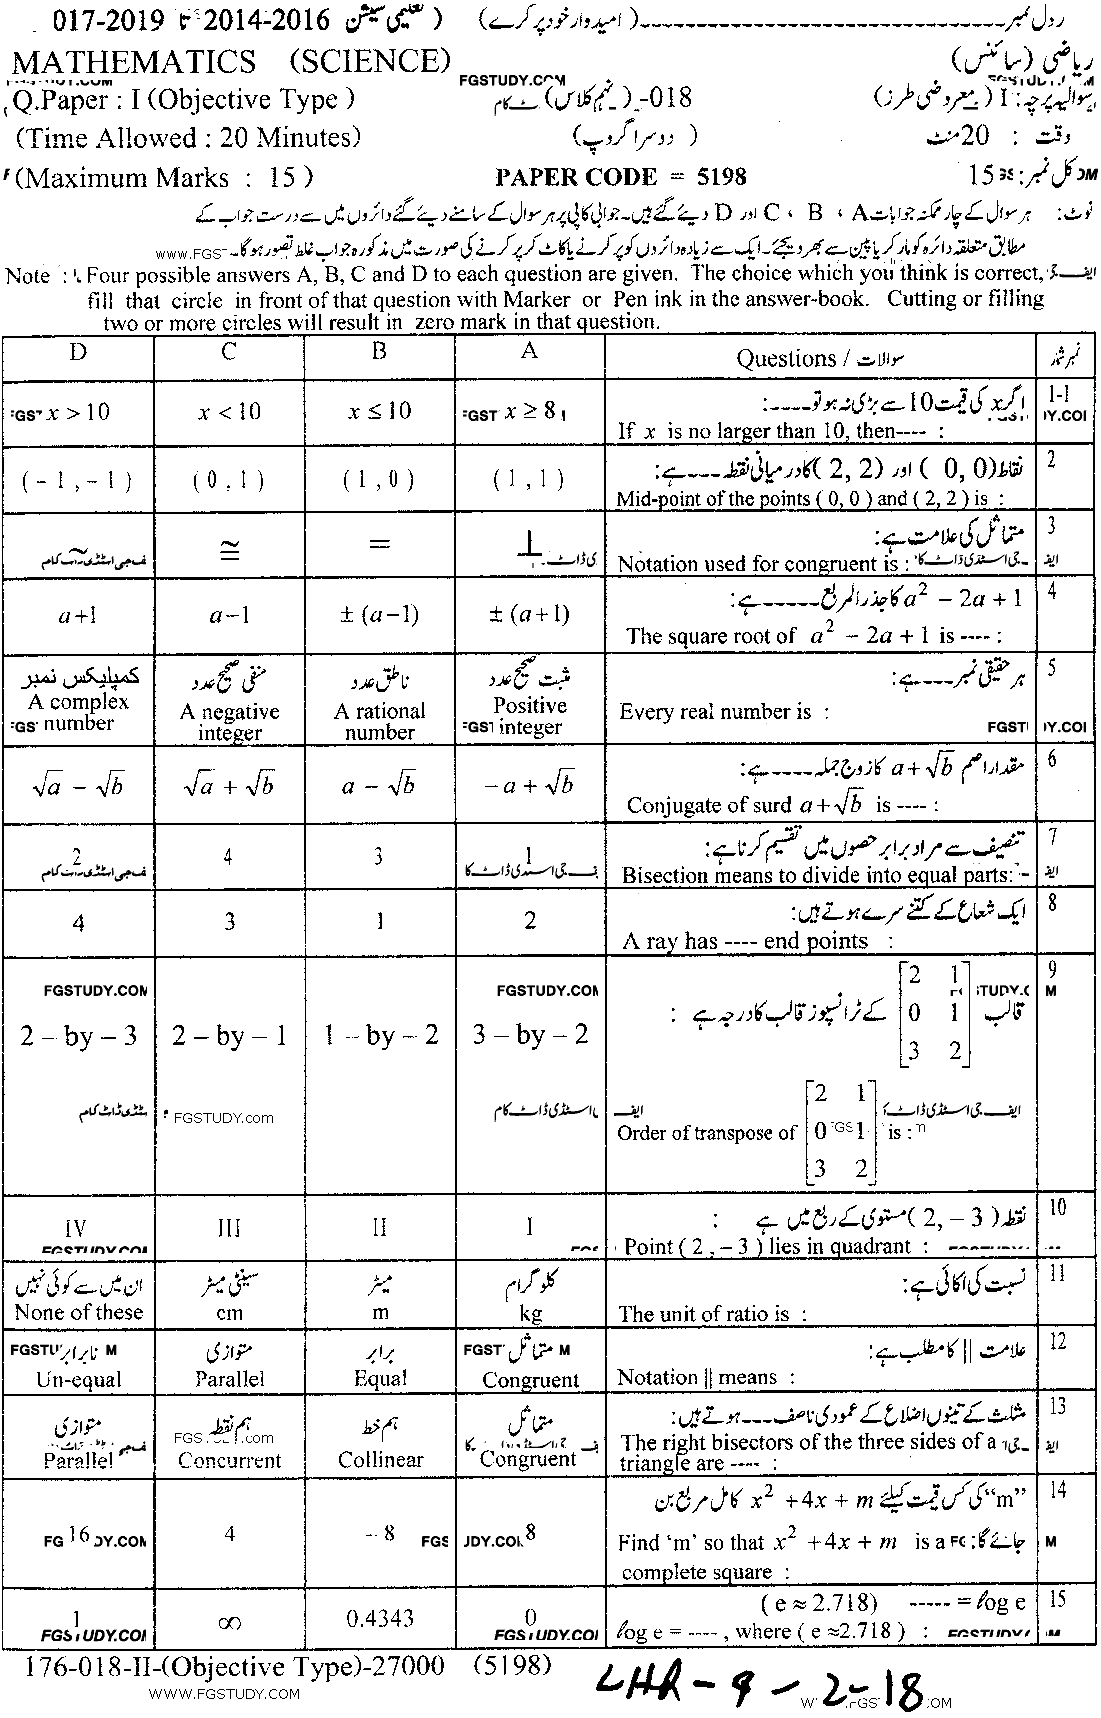 رول نمبر ---------- (امیدوار خود پر کرے) (تعلیمی سیشن 2014-2016 تا 017-2019
MATHEMATICS (SCIENCE) ریاضی (سائنس)
FGSTUDY.COM
Q.Paper : I (Objective Type ) 018-(نہم کلاس) سوالیہ پرچہ : I (معروضی طرز)
(Time Allowed : 20 Minutes) (دوسرا گروپ) وقت : 20 منٹ
(Maximum Marks : 15 ) PAPER CODE = 5198 کل نمبر : 15
نوٹ : ہر سوال کے چار ممکنہ جوابات A ، B ، C اور D دیئے گئے ہیں۔ جوابی کاپی پر ہر سوال کے سامنے دیئے گئے دائروں میں سے درست جواب کے
مطابق متعلقہ دائرہ کو مارکر یا پین سے بھر دیجئے۔ ایک سے زیادہ دائروں کو پر کرنے یا کاٹ کر پر کرنے کی صورت میں مذکورہ جواب غلط تصور ہوگا۔ www.FGS
Note : Four possible answers A, B, C and D to each question are given. The choice which you think is correct,
fill that circle in front of that question with Marker or Pen ink in the answer-book. Cutting or filling
two or more circles will result in zero mark in that question.
D C B A Questions / سوالات نمبر شمار
x > 10 x < 10 x ≤ 10 x ≥ 8 اگر x کی قیمت 10 سے بڑی نہ ہو تو ---- : 1-1
If x is no larger than 10, then---- :
(-1,-1) (0,1) (1,0) (1,1) نقاط (0,0) اور (2,2) کا درمیانی نقطہ --- ہے: 2
Mid-point of the points ( 0, 0 ) and ( 2, 2 ) is :
~ ≅ = ⊥ متماثل کی علامت ہے: 3
Notation used for congruent is :
a+1 a−1 ±(a−1) ±(a+1) a² − 2a + 1 کا جذرالمربع ----- ہے: 4
The square root of a² − 2a + 1 is ---- :
کمپلیکس نمبر منفی صحیح عدد ناطق عدد مثبت صحیح عدد ہر حقیقی نمبر ---- ہے: 5
A complex number A negative integer A rational number Positive integer Every real number is :
√a − √b √a + √b a − √b −a + √b مقدار اصم a+√b کا زوج جملہ ---- ہے: 6
Conjugate of surd a+√b is ---- :
2 4 3 1 تنصیف سے مراد برابر حصوں میں تقسیم کرنا ہے: 7
Bisection means to divide into equal parts:
4 3 1 2 ایک شعاع کے کتنے سرے ہوتے ہیں: 8
A ray has ---- end points :
FGSTUDY.COM FGSTUDY.COM
2 – by – 3 2 – by – 1 1 – by – 2 3 – by – 2 قالب [2 1; 0 1; 3 2] کے ٹرانسپوز قالب کا درجہ ہے : 9
FGSTUDY.com
Order of transpose of [2 1; 0 1; 3 2] is :
IV III II I نقطہ (2, −3) مستوی کے ربع میں ہے : 10
FGSTUDY.COM Point ( 2 , − 3 ) lies in quadrant :
ان میں سے کوئی نہیں سینٹی میٹر میٹر کلوگرام نسبت کی اکائی ہے: 11
None of these cm m kg The unit of ratio is :
نابرابر متوازی برابر متماثل علامت || کا مطلب ہے: 12
Un-equal Parallel Equal Congruent Notation || means :
متوازی ہم نقطہ ہم خط متماثل مثلث کے تینوں اضلاع کے عمودی ناصف --- ہوتے ہیں: 13
Parallel Concurrent Collinear Congruent The right bisectors of the three sides of a
triangle are ---- :
“m” کی کس قیمت کیلئے x² +4x + m کامل مربع بن 14
16 4 −8 8 Find ‘m’ so that x² +4x + m is a جائے گا:
complete square :
1 ∞ 0.4343 0 ( e ≈ 2.718) ----- = log e 15
FGSTUDY.COM FGSTUDY.COM log e = ---- , where ( e ≈2.718 ) :
176-018-II-(Objective Type)-27000 (5198) LHR-9-2-18
WWW.FGSTUDY.COM